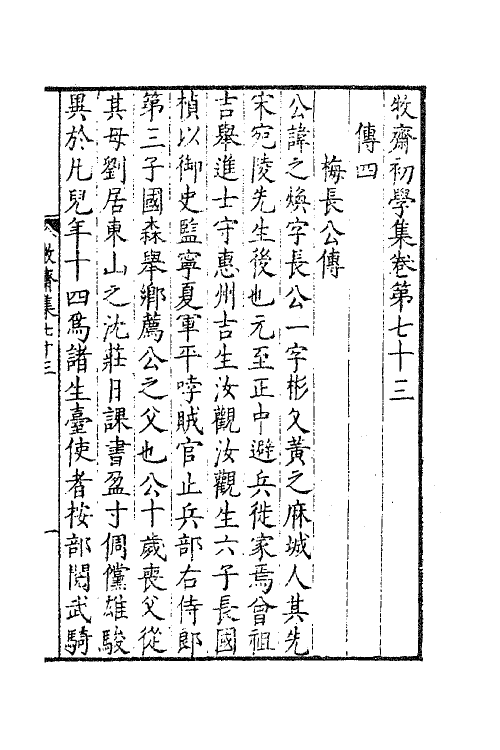 牧齋初學集卷第七十三
傳四
梅長公傳
公諱之煥字長公一字彬父黃之麻城人其先
宋宛陵先生後也元至正中避兵徙家焉曾祖
吉舉進士守惠州吉生汝觀汝觀生六子長國
楨以御史監寧夏軍平哱賊官止兵部右侍郎
第三子國森舉鄉薦公之父也公十歲喪父從
其母劉居東山之沈莊日課書盈寸倜儻雄駿
異於凡兒年十四爲諸生臺使者按部閱武騎
牧齋集七十三
一